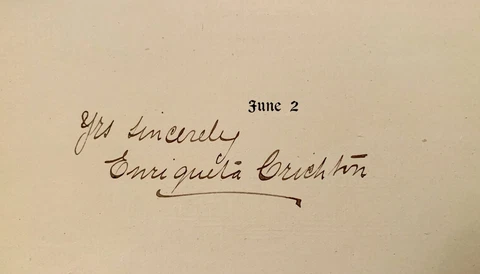 June 2
Yrs sincerely
Enriqueta Crichton